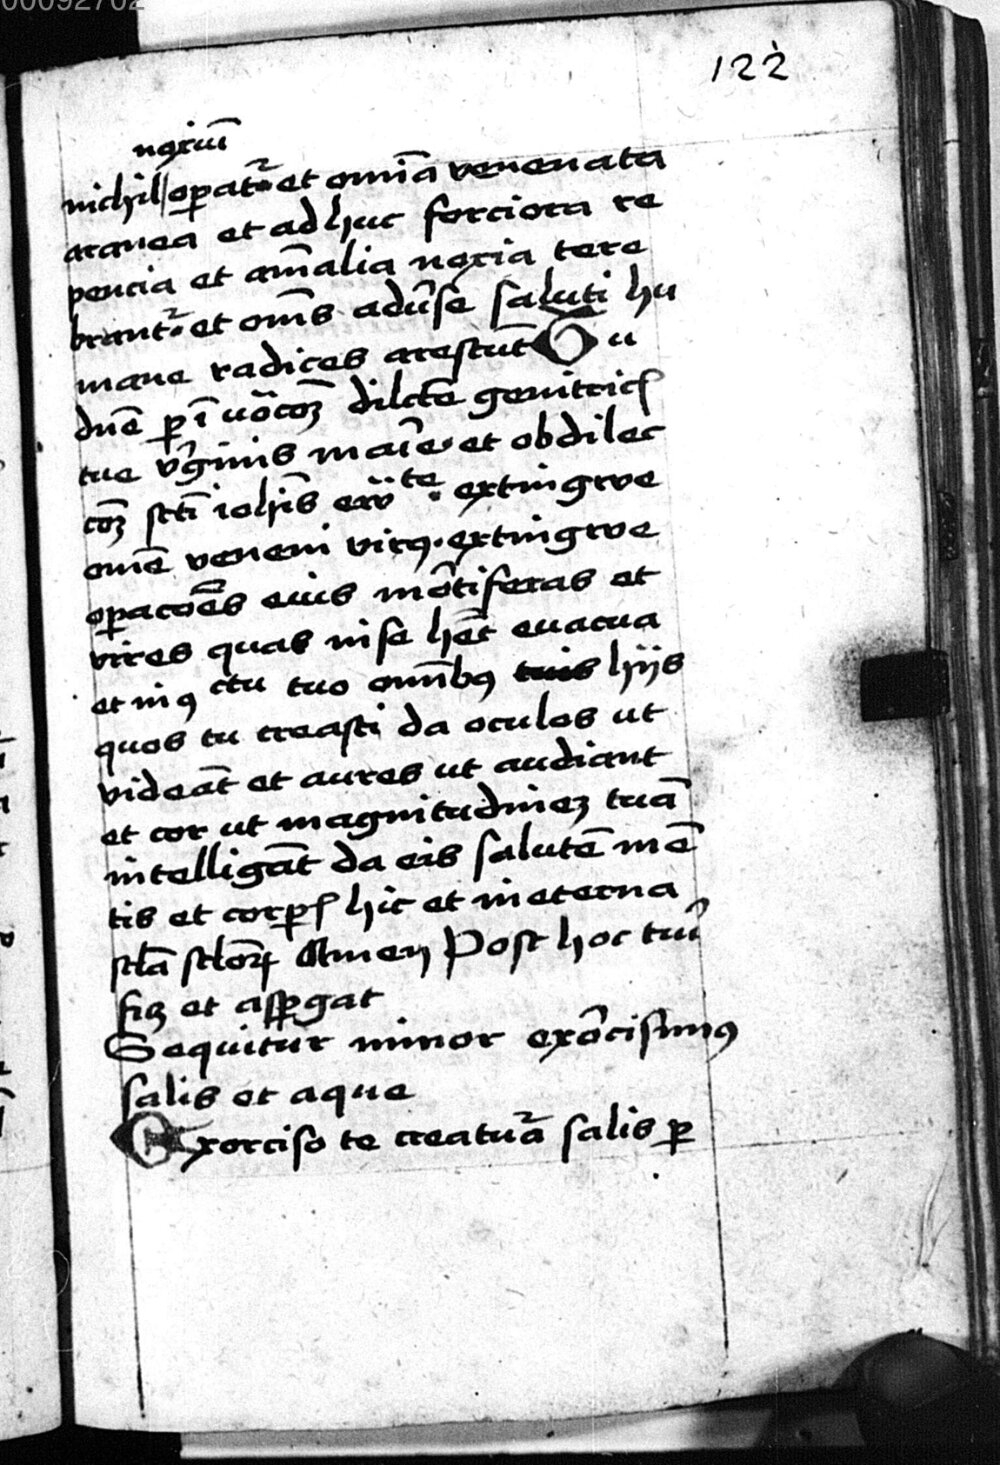 00092702
122
noxiū
nichil opat᷑ et om̄ia venenata
aranea et adhuc forciora re
pencia et am̄alia noxia tere
brant᷑ et om̄s aduˀse saluti hu
mane radices arescūt O u
dn̄e ꝑ ī uōcōꝫ dilc̄te genitricꝭ
tue vˀginis maīe et ob dilec
cōꝫ sc̄ti ioh̄is extingwe
om̄e veneni virꝯ extingwe
oꝑacōēs eius mōtiferas et
vires quas in se hēt euacua
et in ꝯctu tuo om̄ibꝯ tuis hijs
quos tu creasti da oculos ut
videāt et aures ut audiant
et cor ut magnitudineꝫ tuā
intelligāt da eis salutē mē
tis et corꝑꝭ hic et in eterna
scl̄a scl̄oꝝ Amen Post hoc
fiꝫ et asꝑgat
Sequitur minor exōcismꝯ
salis et aque
Exorciso te creatūa salis ꝑ